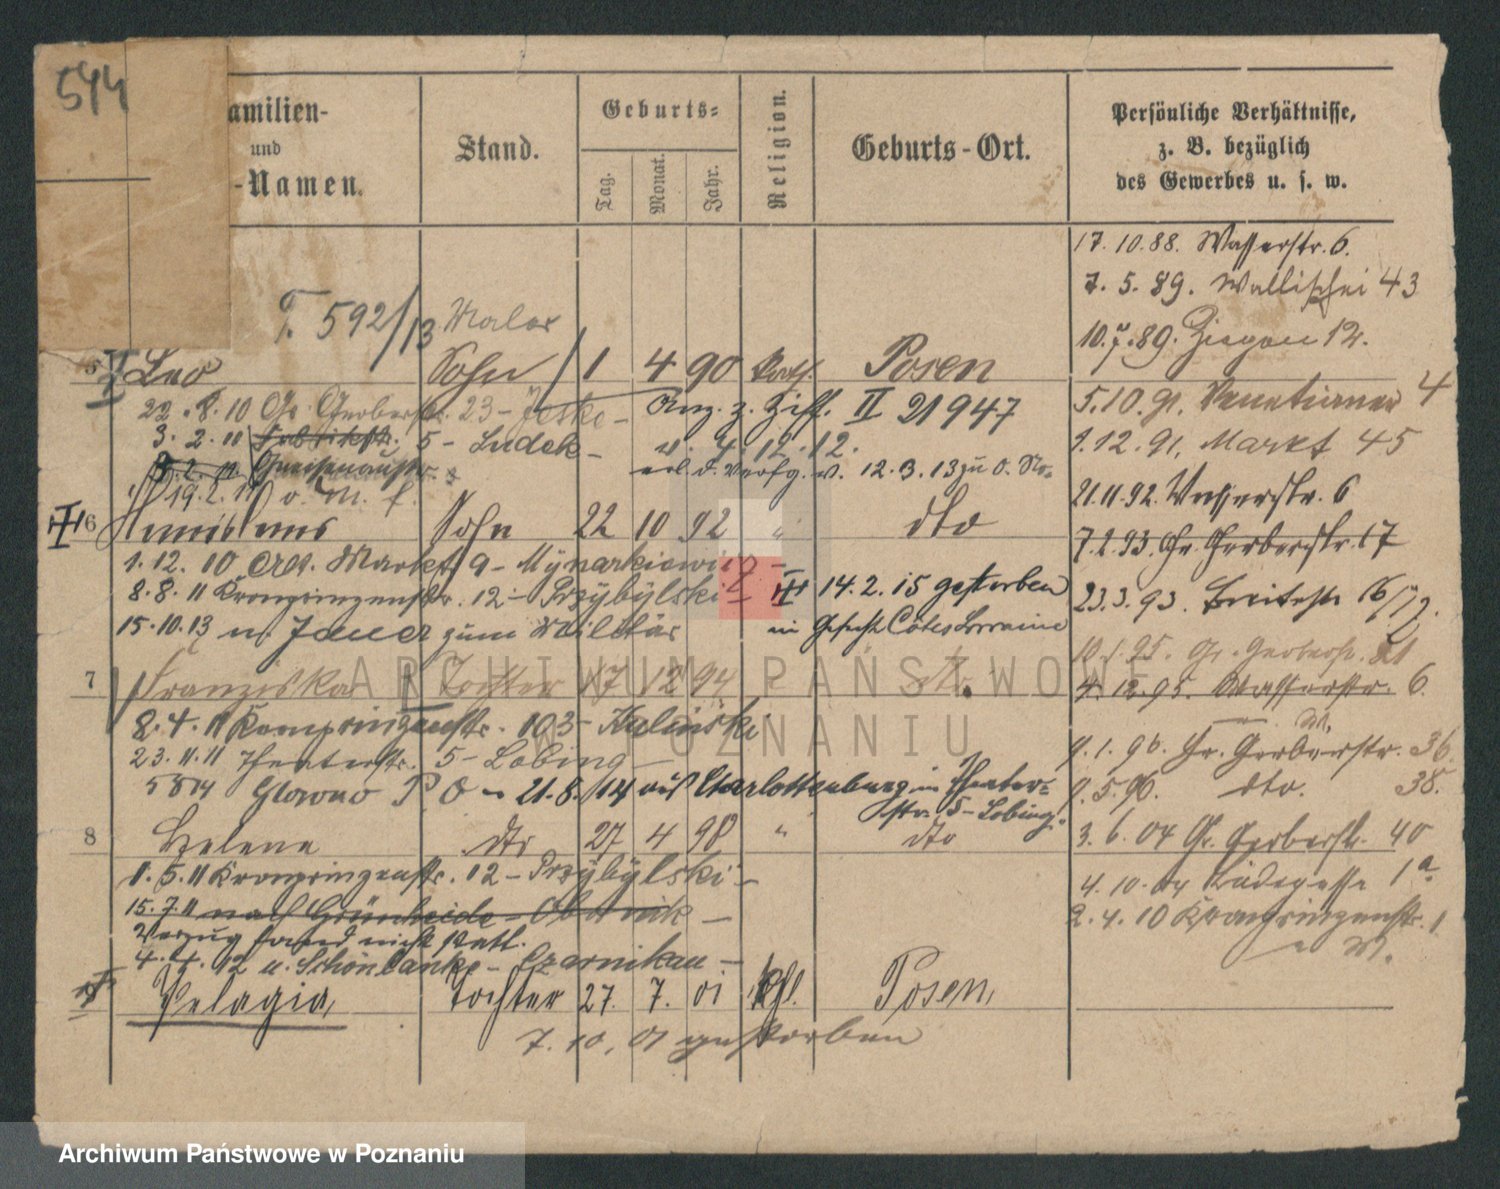 544
amilien-
und
-Namen.
Stand.
Geburts-
Tag.
Monat.
Jahr.
Religion.
Geburts-Ort.
Persönliche Verhältnisse,
z. B. bezüglich
des Gewerbes u. s. w.
17. 10. 88. Wasserstr. 6.
7. 5. 89. Wallischei 43
T. 592/13 Maler
10. 7. 89. Ziegen 12.
5 Leo Sohn 1 4 90 Kath. Posen
22. 8. 10 Gr. Gerberstr. 23 - Jeske - Anz. z. Ziff. II 21947
5. 10. 91. Venetianer 4
3. 2. 11 Fabrikstr. 5 - Ludek - v. 4. 12. 12.
1. 12. 91. Markt 45
Gneisenaustr. erl. d. Verfg. v. 12. 3. 13 zu O.
19. 2. 11
21. 11. 92. Wasserstr. 6
6 Sohn 22 10 92 " dto
7. 2. 93. Gr. Gerberstr. 17
1. 12. 10 Alt. Markt 9 - Mynarkiewicz -
8. 8. 11 Kronprinzenstr. 12 - Przybylski - 14. 2. 15 gestorben
23. 3. 93. Breitestr.
15. 10. 13 n. Jauer zum Militär im Gefecht Côtes Lorraine
10. 1. 95. Gr. Gerberstr. 21
7 Franziska Tochter 17 12 94 " dto.
4. 12. 95. Wasserstr. 6.
8. 4. 11 Kronprinzenstr. 103 - Kalinski
23. 11. 11 Theaterstr. 5 - Lobing -
9. 1. 96. Gr. Gerberstr. 36
Glowno P. O - 21. 8. 14 aus Charlottenburg in Theater-
str. 5 - Lobing.
9. 5. 96. dto. 38.
8 Helene dto 27 4 98 " dto
3. 6. 04 Gr. Gerberstr. 40
1. 5. 11 Kronprinzenstr. 12 - Przybylski -
4. 10. 04 Büdegasse 1a.
15. 7. 11 nach Grünheide - Obornik -
2. 4. 10 Kronprinzenstr. 1
Verzug fand nicht statt.
4. 4. 12 n. Schönlanke - Czarnikau -
9 Pelagia, Tochter 27. 7. 01 kath. Posen,
7. 10. 01 gestorben
ARCHIWUM PAŃSTWOWE
W POZNANIU
Archiwum Państwowe w Poznaniu